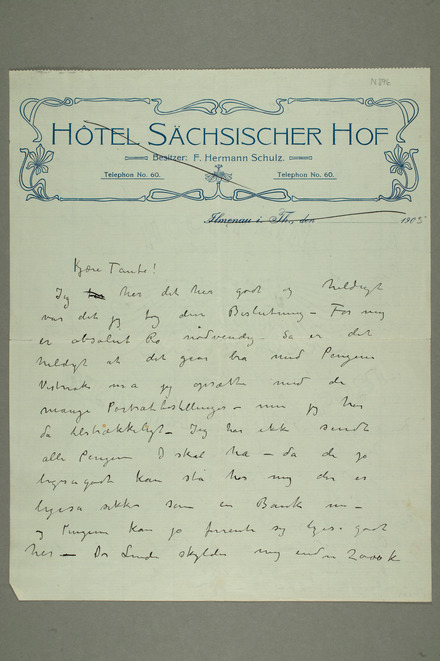 N 896
HÔTEL SÄCHSISCHER HOF
Besitzer: F. Hermann Schulz.
Telephon No. 60. Telephon No. 60.
Ilmenau i. Th., den 1905
Kjære Tante!
Jeg har det her godt og heldigt
var det jeg tog den Beslutning – For mig
er absolut Ro nødvendig. Så er det
heldigt at det gear bra med Pengene
Vistnok må jeg opsætte med de
mange Portrætbestillinger – men jeg har
da tilstrækkeligt – Jeg har ikke sendt
alle Pengene I skal ha – da de jo
ligesågodt kan stå hos mig der er
ligeså sikker som en Bank
og Pengene kan jo forrente sig ligeså godt
her – Dr Linde skylder mig endnu 2000 K